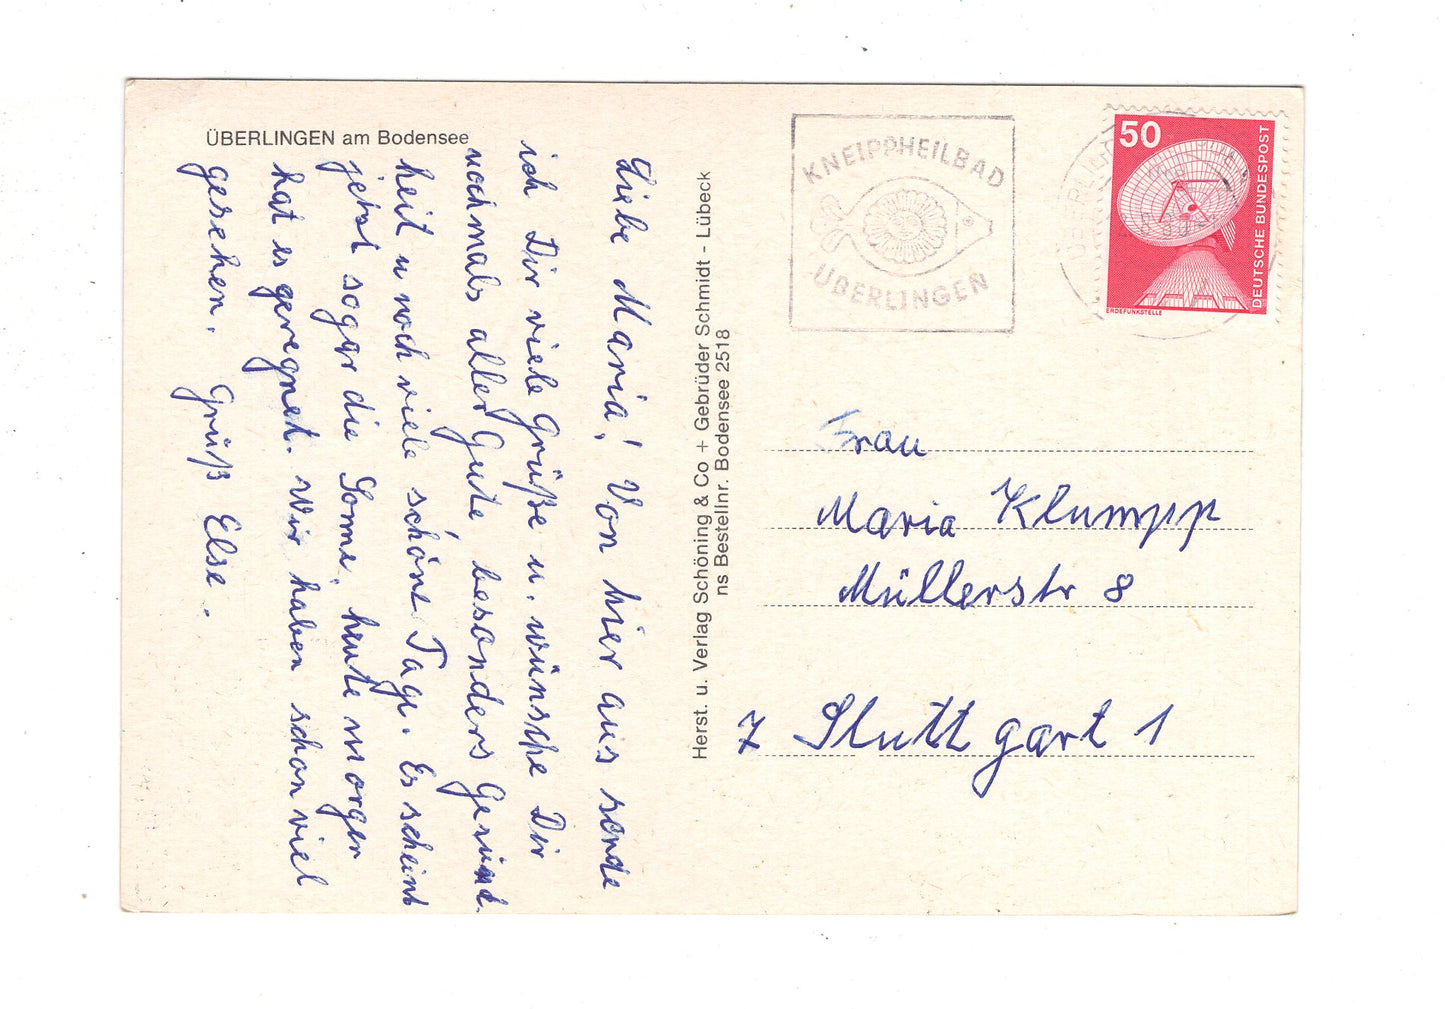 ÜBERLINGEN am Bodensee
Liebe Maria! Von hier aus sende
ich Dir viele Grüße u. wünsche Dir
nochmals alles Gute, besonders Gesund-
heit u noch viele schöne Tage. Es scheint
jetzt sogar die Sonne, heute morgen
hat es geregnet. Wir haben schon viel
gesehen. Gruß Else.
Herst. u. Verlag Schöning & Co + Gebrüder Schmidt - Lübeck
ns Bestellnr. Bodensee 2518
KNEIPPHEILBAD
ÜBERLINGEN
50
DEUTSCHE BUNDESPOST
ERDEFUNKSTELLE
Frau
Maria Klumpp
Müllerstr 8
7 Stuttgart 1